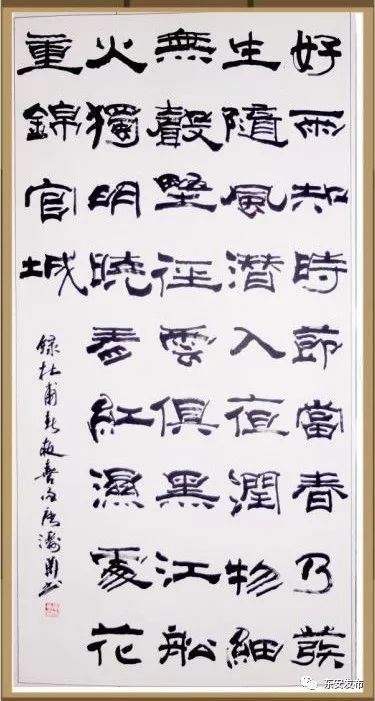 好雨知時節當春乃發
生隨風潛入夜潤物細
無聲野徑雲俱黑江船
火獨明曉看紅濕處花
重錦官城
録杜甫春夜喜雨
东安发布